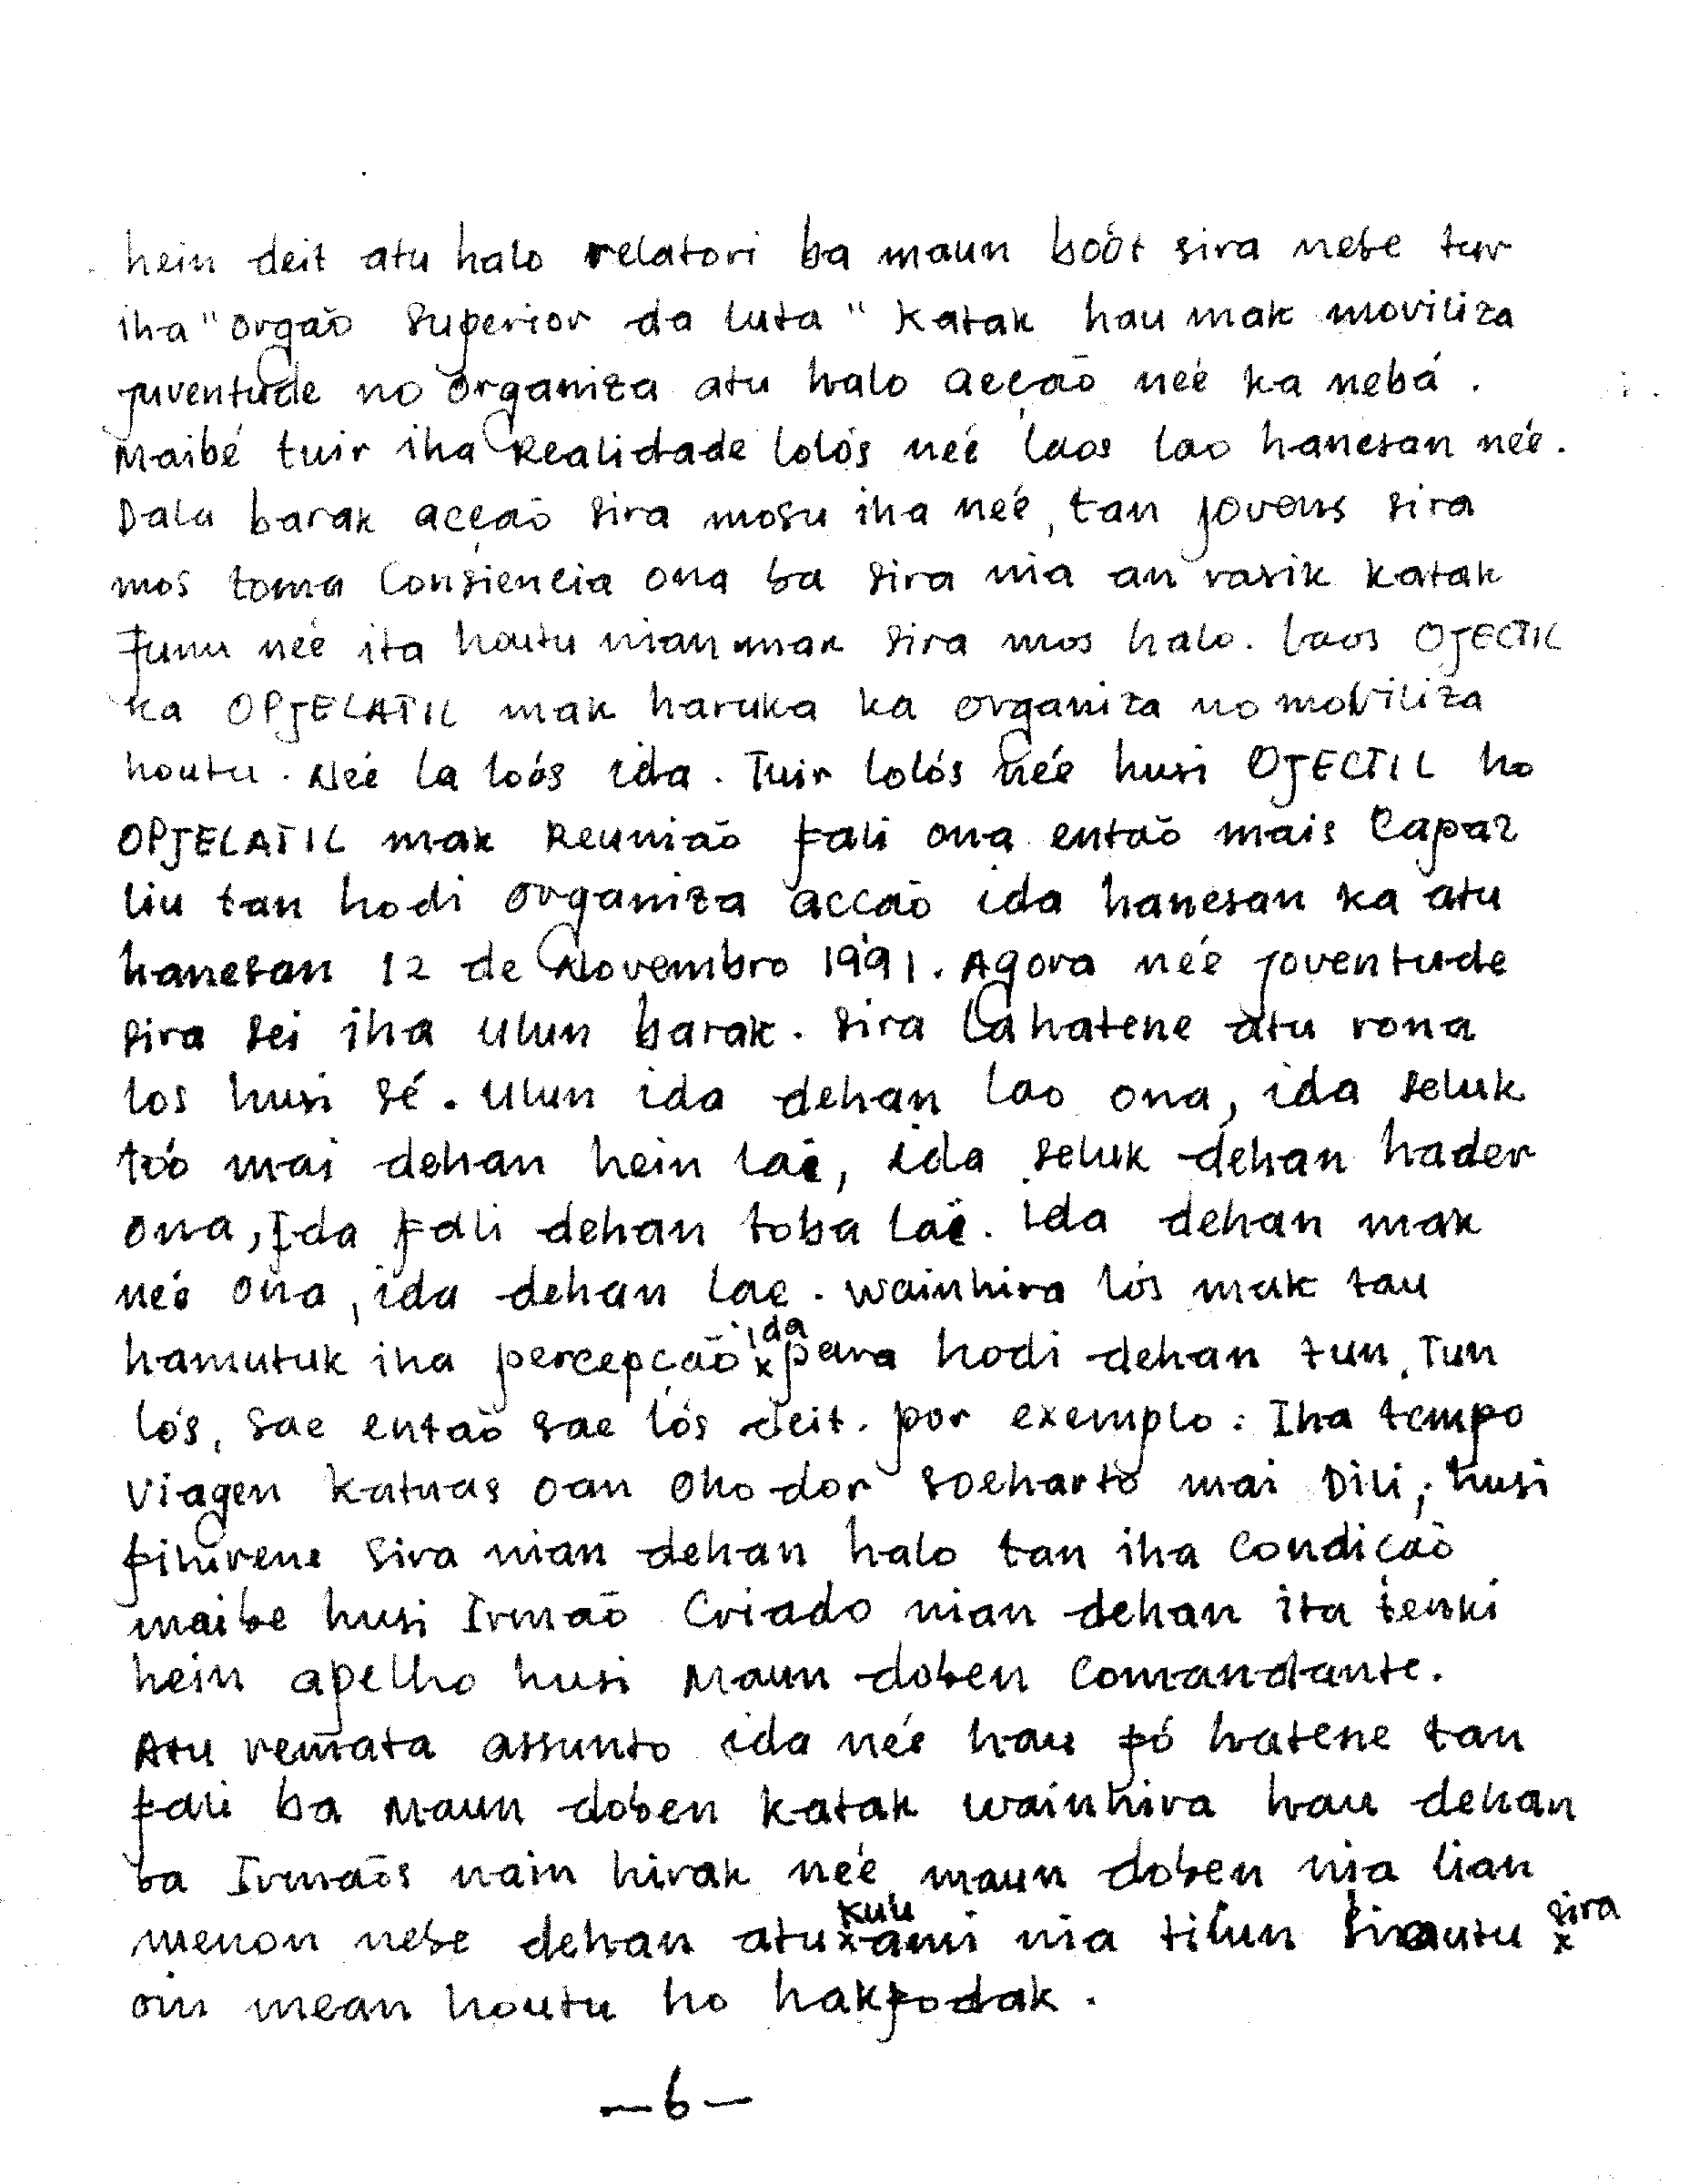 hein deit atu halo relatori ba maun boót sira nebe tur
iha "orgaõ Superior da luta" katak hau mak moviliza
juventude no organiza atu halo acçaõ neé ka nebá.
Maibé tuir iha Realidade lolós neé laos lao hanesan neé.
Dala barak acçaõ sira mosu iha neé, tan jovens sira
mos toma Consiencia ona ba sira nia an rasik katak
funu neé ita houtu nian mak sira mos halo. laos OJECTIL
ka OPJELATIL mak haruka ka organiza no mobiliza
houtu. Neé la loós ida. Tuir lolós neé husi OJECTIL ho
OPJELATIL mak Reuniaõ fali ona entaõ mais Capaz
liu tan hodi organiza accaõ ida hanesan ka atu
hanesan 12 de Novembro 1991. Agora neé joventude
sira sei iha ulun barak. sira lahatene atu rona
los husi sé. Ulun ida dehan lao ona, ida seluk
toó mai dehan hein lai, ida seluk dehan hader
ona, Ida fali dehan toba lai. ida dehan mak
neé ona, ida dehan lae. wainhira lós mak tau
hamutuk iha percepçaõ ida para hodi dehan tun, Tun
lós, sae entaõ sae lós deit. por exemplo: Iha tempo
viagen katuas oan ohodor Soeharto mai Dili, husi
fihirene sira nian dehan halo tan iha Condiçaõ
maibe husi Irmaõ Criado nian dehan ita tenki
hein apelho husi Maun doben Comandante.
Atu remata assunto ida neé hau fó hatene tan
fali ba Maun doben katak wainhira hau dehan
ba Irmaõs nain hirak neé maun doben nia lian
menon nebe dehan atu kulu ami nia tilun houtu sira
oin mean houtu ho hakfodak.
—6—